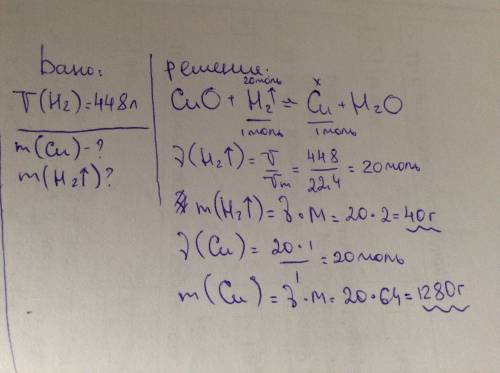 Дано:
V(H₂)=448л
m(Cu)-?
m(H₂↑)?
Решение:
20моль x
CuO + H₂↑ = Cu + H₂O
1моль 1моль
ν(H₂↑) = V/Vm = 448/22.4 = 20моль
m(H₂↑) = ν · M = 20 · 2 = 40г
ν(Cu) = 20·1/1 = 20моль
m(Cu) = ν · M = 20 · 64 = 1280г